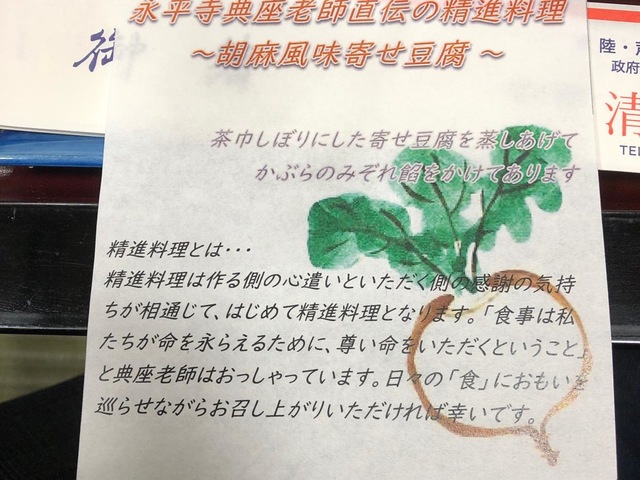 永平寺典座老師直伝の精進料理
～胡麻風味寄せ豆腐 ～
茶巾しぼりにした寄せ豆腐を蒸しあげて
かぶらのみぞれ餡をかけてあります
精進料理とは･･･
精進料理は作る側の心遣いといただく側の感謝の気持
ちが相通じて、はじめて精進料理となります。「食事は私
たちが命を永らえるために、尊い命をいただくということ」
と典座老師はおっしゃっています。日々の「食」におもいを
巡らせながらお召し上がりいただければ幸いです。
陸・
政府
清
TEL